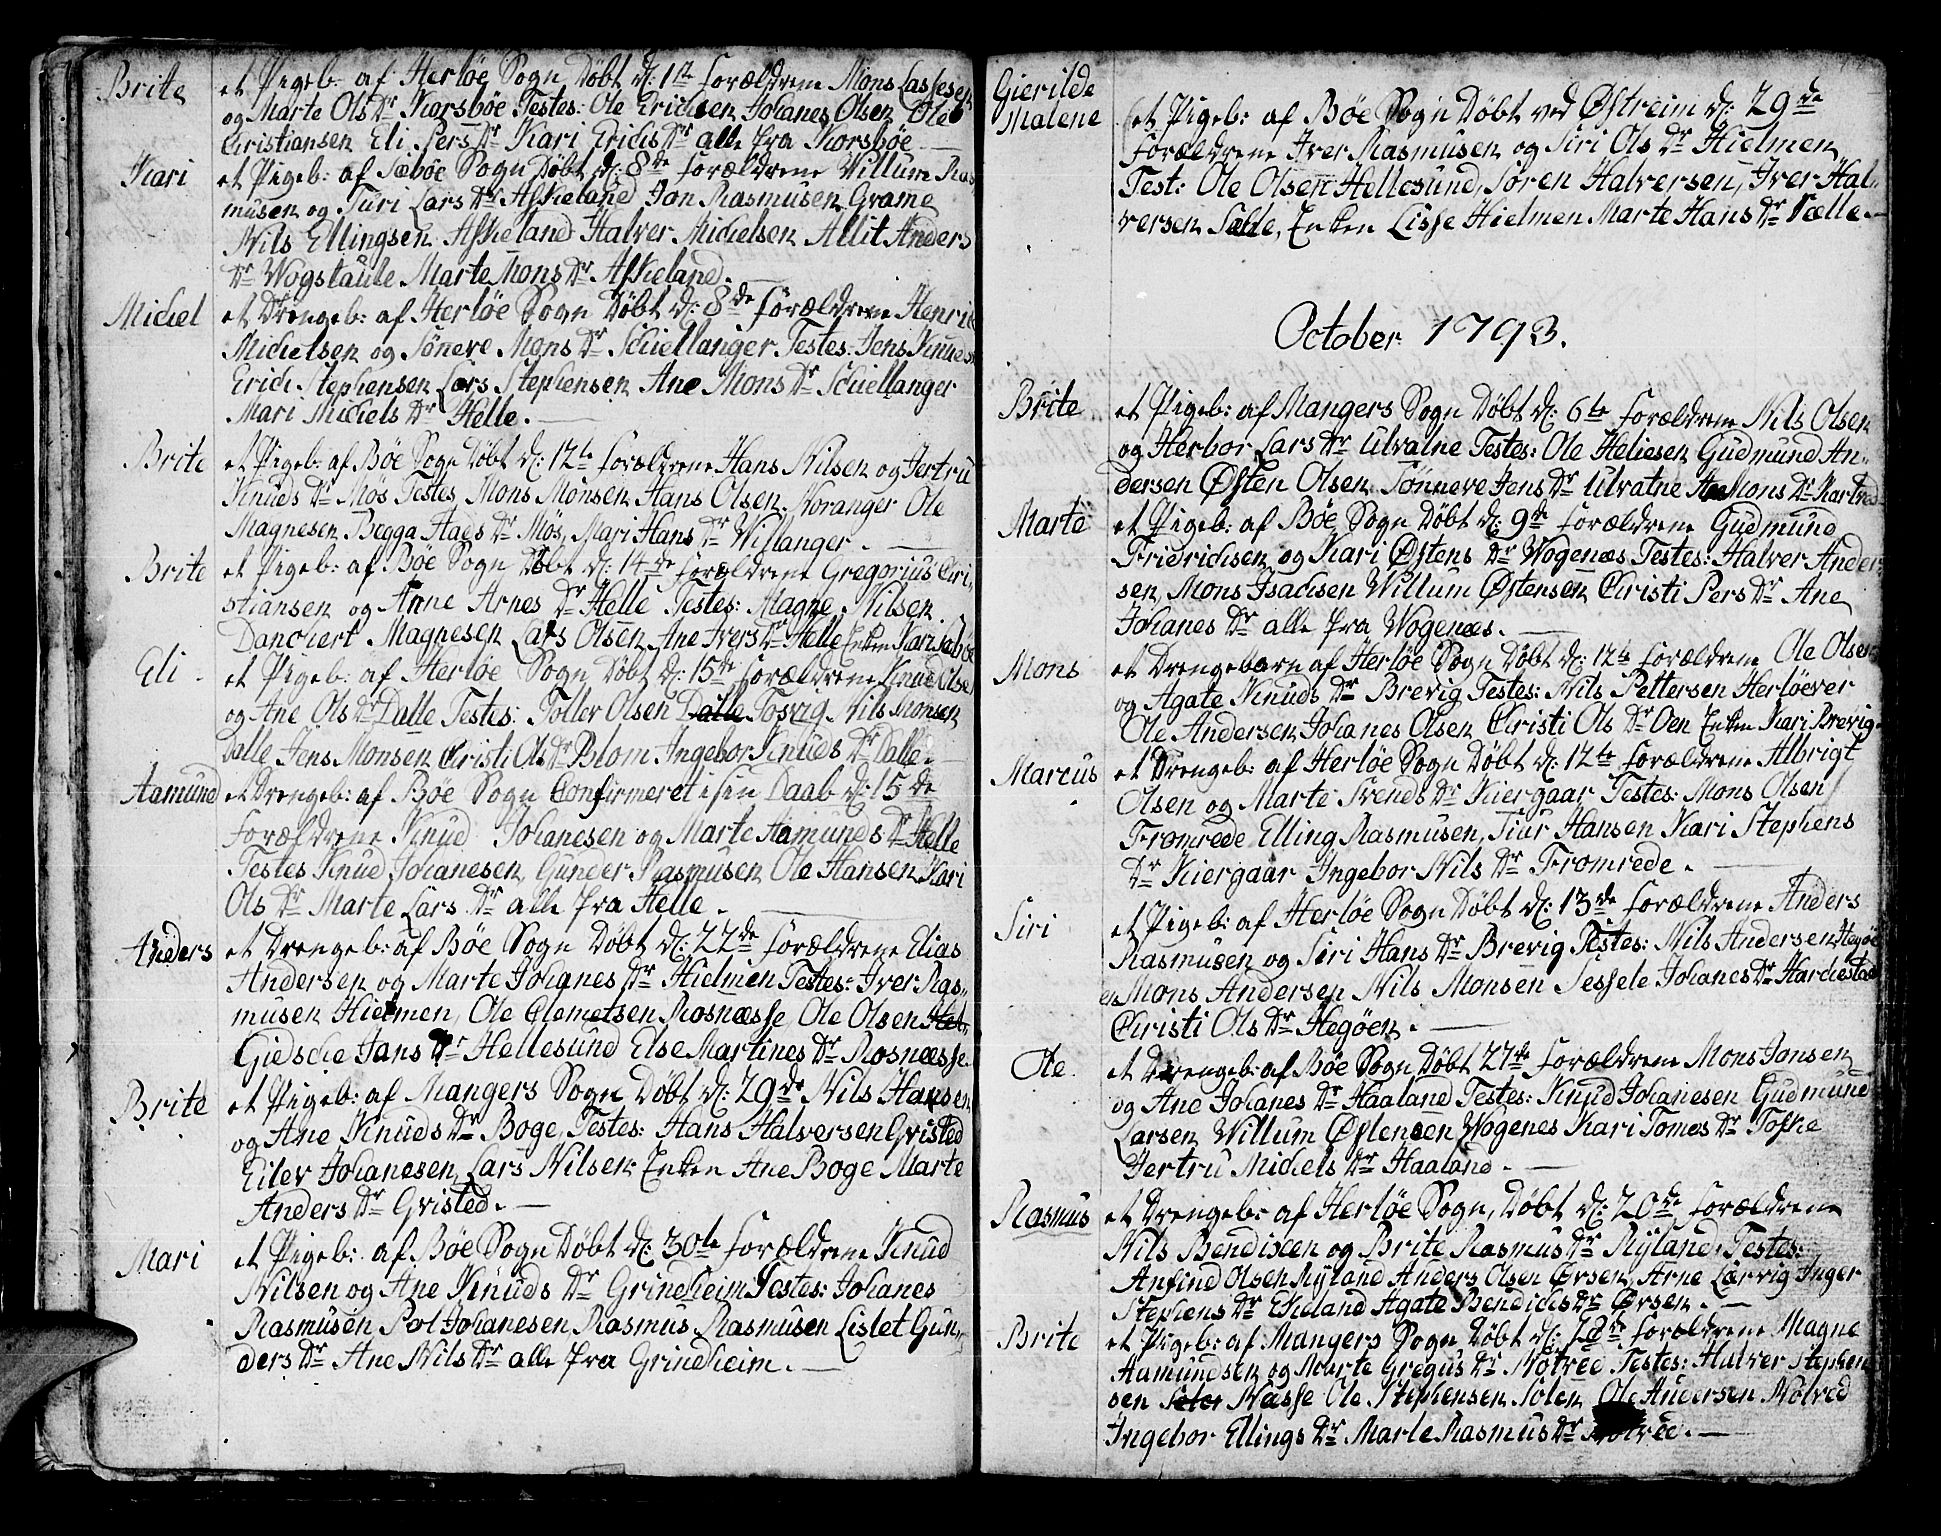 Brite et Pigeb: af Herløe Sogn Døbt d: 1ste Forældrene Mons Lassesen
og Marte Ols Dr Korsbøe Testes: Ole Erichsen Johanes Olsen Ole
Christiansen Eli Pers Dr Kari Erichs Dr alle fra Korsbøe.
Kari et Pigeb: af Sæbøe Sogn Døbt d: 8de Forældrene Willum Ras
musen og Turi Lars Dr Askeland Jon Rasmusen Grame
Nils Ellingsen Askeland Halver Michelsen Allit Anders
Dr Wogstaule Marte Mons Dr Askeland.
Michel et Drengeb: af Herløe Sogn Døbt d: 8de Forældrene Henric
Michelsen og Söneve Mons Dr Schiellanger Testes: Jens Knuds
Erich Stephensen Lars Stephensen Ane Mons Dr Schiellanger
Mari Michels Dr Helle.
Brite et Pigeb: af Bøe Sogn Døbt d: 12te Forældrene Hans Nilsen og Jertru
Knuds Dr Møs Testes Mons Monsen Hans Olsen Noranger Ole
Magnesen Begga Aaes Dr Møs, Mari Hans Dr Wislanger.
Brite et Pigeb: af Bøe Sogn Døbt d: 14de Forældrene Gregorius Chri,
stiansen og Anne Arnes Dr Helle Testes: Magne Nilsen
Danchert Magnesen Lars Olsen Ane Ivers Dr Helle Enken Kari Sæbøe
Eli. et Pigeb: af Herløe Sogn Døbt d: 15de Forældrene Knud Olsen
og Ane Ols Dr Dalle Testes: Toller Olsen Dalle Tosvig Nils Monsen
Dalle Jens Monsen Christi Ols Dr Blom Ingebor Knuds Dr Dalle.
Aamund et Drengeb: af Bøe Sogn Confirmeret i sin Daab d: 15de
Forældrene Knud Johanesen og Marte Aamunds Dr Helle
Testes Knud Johanesen, Gunder Rasmusen Ole Hansen Kari
Ols Dr Marte Lars Dr alle fra Helle.
Anders et Drengeb: af Bøe Sogn Døbt d: 22de Forældrene Elias
Andersen og Marte Johanes Dr Hielmen Testes: Iver Ras,
musen Hielmen, Ole Clemetsen Rosnæsse, Ole Olsen Hel,
Giedsche Jans Dr Hellesund Else Martines Dr Rosnæsse.
Brite et Pigeb: af Mangers Sogn Døbt d: 29de Nils Hansen
og Ane Knuds Dr Boge, Testes: Hans Halversen Gvisted
Eilev Johanesen, Lars Nilsen Enken Ane Boge Marte
Anders Dr Gvisted.
Mari et Pigeb: af Bøe Sogn Døbt d: 30te Forældrene Knud
Nilsen og Ane Knuds Dr Grindheim Testes: Johanes
Rasmusen Pol Johanesen, Rasmus Rasmusen Listet Gun,
ders Dr Ane Nils Dr alle fra Grindheim.
Gierilde
Malene et Pigeb: af Bøe Sogn Døbt ved Østreim d: 29de
Forældrene Iver Rasmusen og Siri Ols Dr Hielmen
Test: Ole Olsen Hellesund, Søren Halversen, Iver Hal,
versen Sælle, Enken Lisse Hielmen Marte Hans Dr Sælle.
October 1793.
Brite et Pigeb: af Mangers Sogn Døbt d: 6te Forældrene Nils Olsen
og Herbor Lars Dr Ulvatne Testes: Ole Heliesen Gudmund An,
dersen Østen Olsen Sönneve Jens Dr Ulvatne Mons Dr Kartved
Marte et Pigeb: af Bøe Sogn Døbt d: 9de Forældrene Gudmund
Fridrichsen og Kari Østens Dr Wogenæs Testes: Halver Ander
sen, Mons Isachsen Willum Østensen Christi Pers Dr Ane
Johanes Dr alle fra Wogenæs.
Mons et Drengebarn af Herløe Sogn Døbt d: 12te Forældrene Ole Olsen
og Agate Knuds Dr Brevig Testes: Nils Pettersen Herløever
Ole Andersen Johanes Olsen Christi Ols Dr Oen Enken Kari Brevig.
Marcus et Drengeb: af Herløe Sogn Døbt d: 12te Forældrene Albrigt
Olsen og Marte Svends Dr Kiergaar Testes: Mons Olsen
Fromrede Elling Rasmusen, Siur Hansen Kari Stephens
Dr Kiergaar Ingebor Nils Dr Fromrede.
Siri et Pigeb: af Herløe Sogn Døbt d: 13de Forældrene Anders
Rasmusen og Siri Hans Dr Brevig Testes: Nils Andersen Hegøe
en Mons Andersen Nils Monsen Sessele Johanes Dr Harchestad
Christi Ols Dr Hegøen.
Ole. et Drengeb: af Bøe Sogn Døbt 27de Forældrene Mons Jonsen
og Ane Johanes Dr Haaland Testes: Knud Johanesen Gudmund
Larsen Willum Østensen Wogenes Kari Tomas Dr Toske
Jertru Michels Dr Haaland.
Rasmus et Drengeb: af Herløe Sogn, Døbt d: 20de Forældrene
Nils Bendixen og Brite Rasmus Dr Ryland, Testes:
Anfind Olsen Ryland Anders Olsen Ørsen, Arne Lærvig Inger
Stephens Dr Ekeland Agate Bendichs Dr Ørsen.
Brite et Pigeb: af Mangers Sogn Døbt d: Forældrene Magne
Aamundsen og Marte Gregus Dr Nötvee Testes: Halver Stephen
sen Næsse Ole Stephensen Solen Ole Andersen Nötved
Ingebor Ellings Dr Marte Rasmus Dr Nötvee.